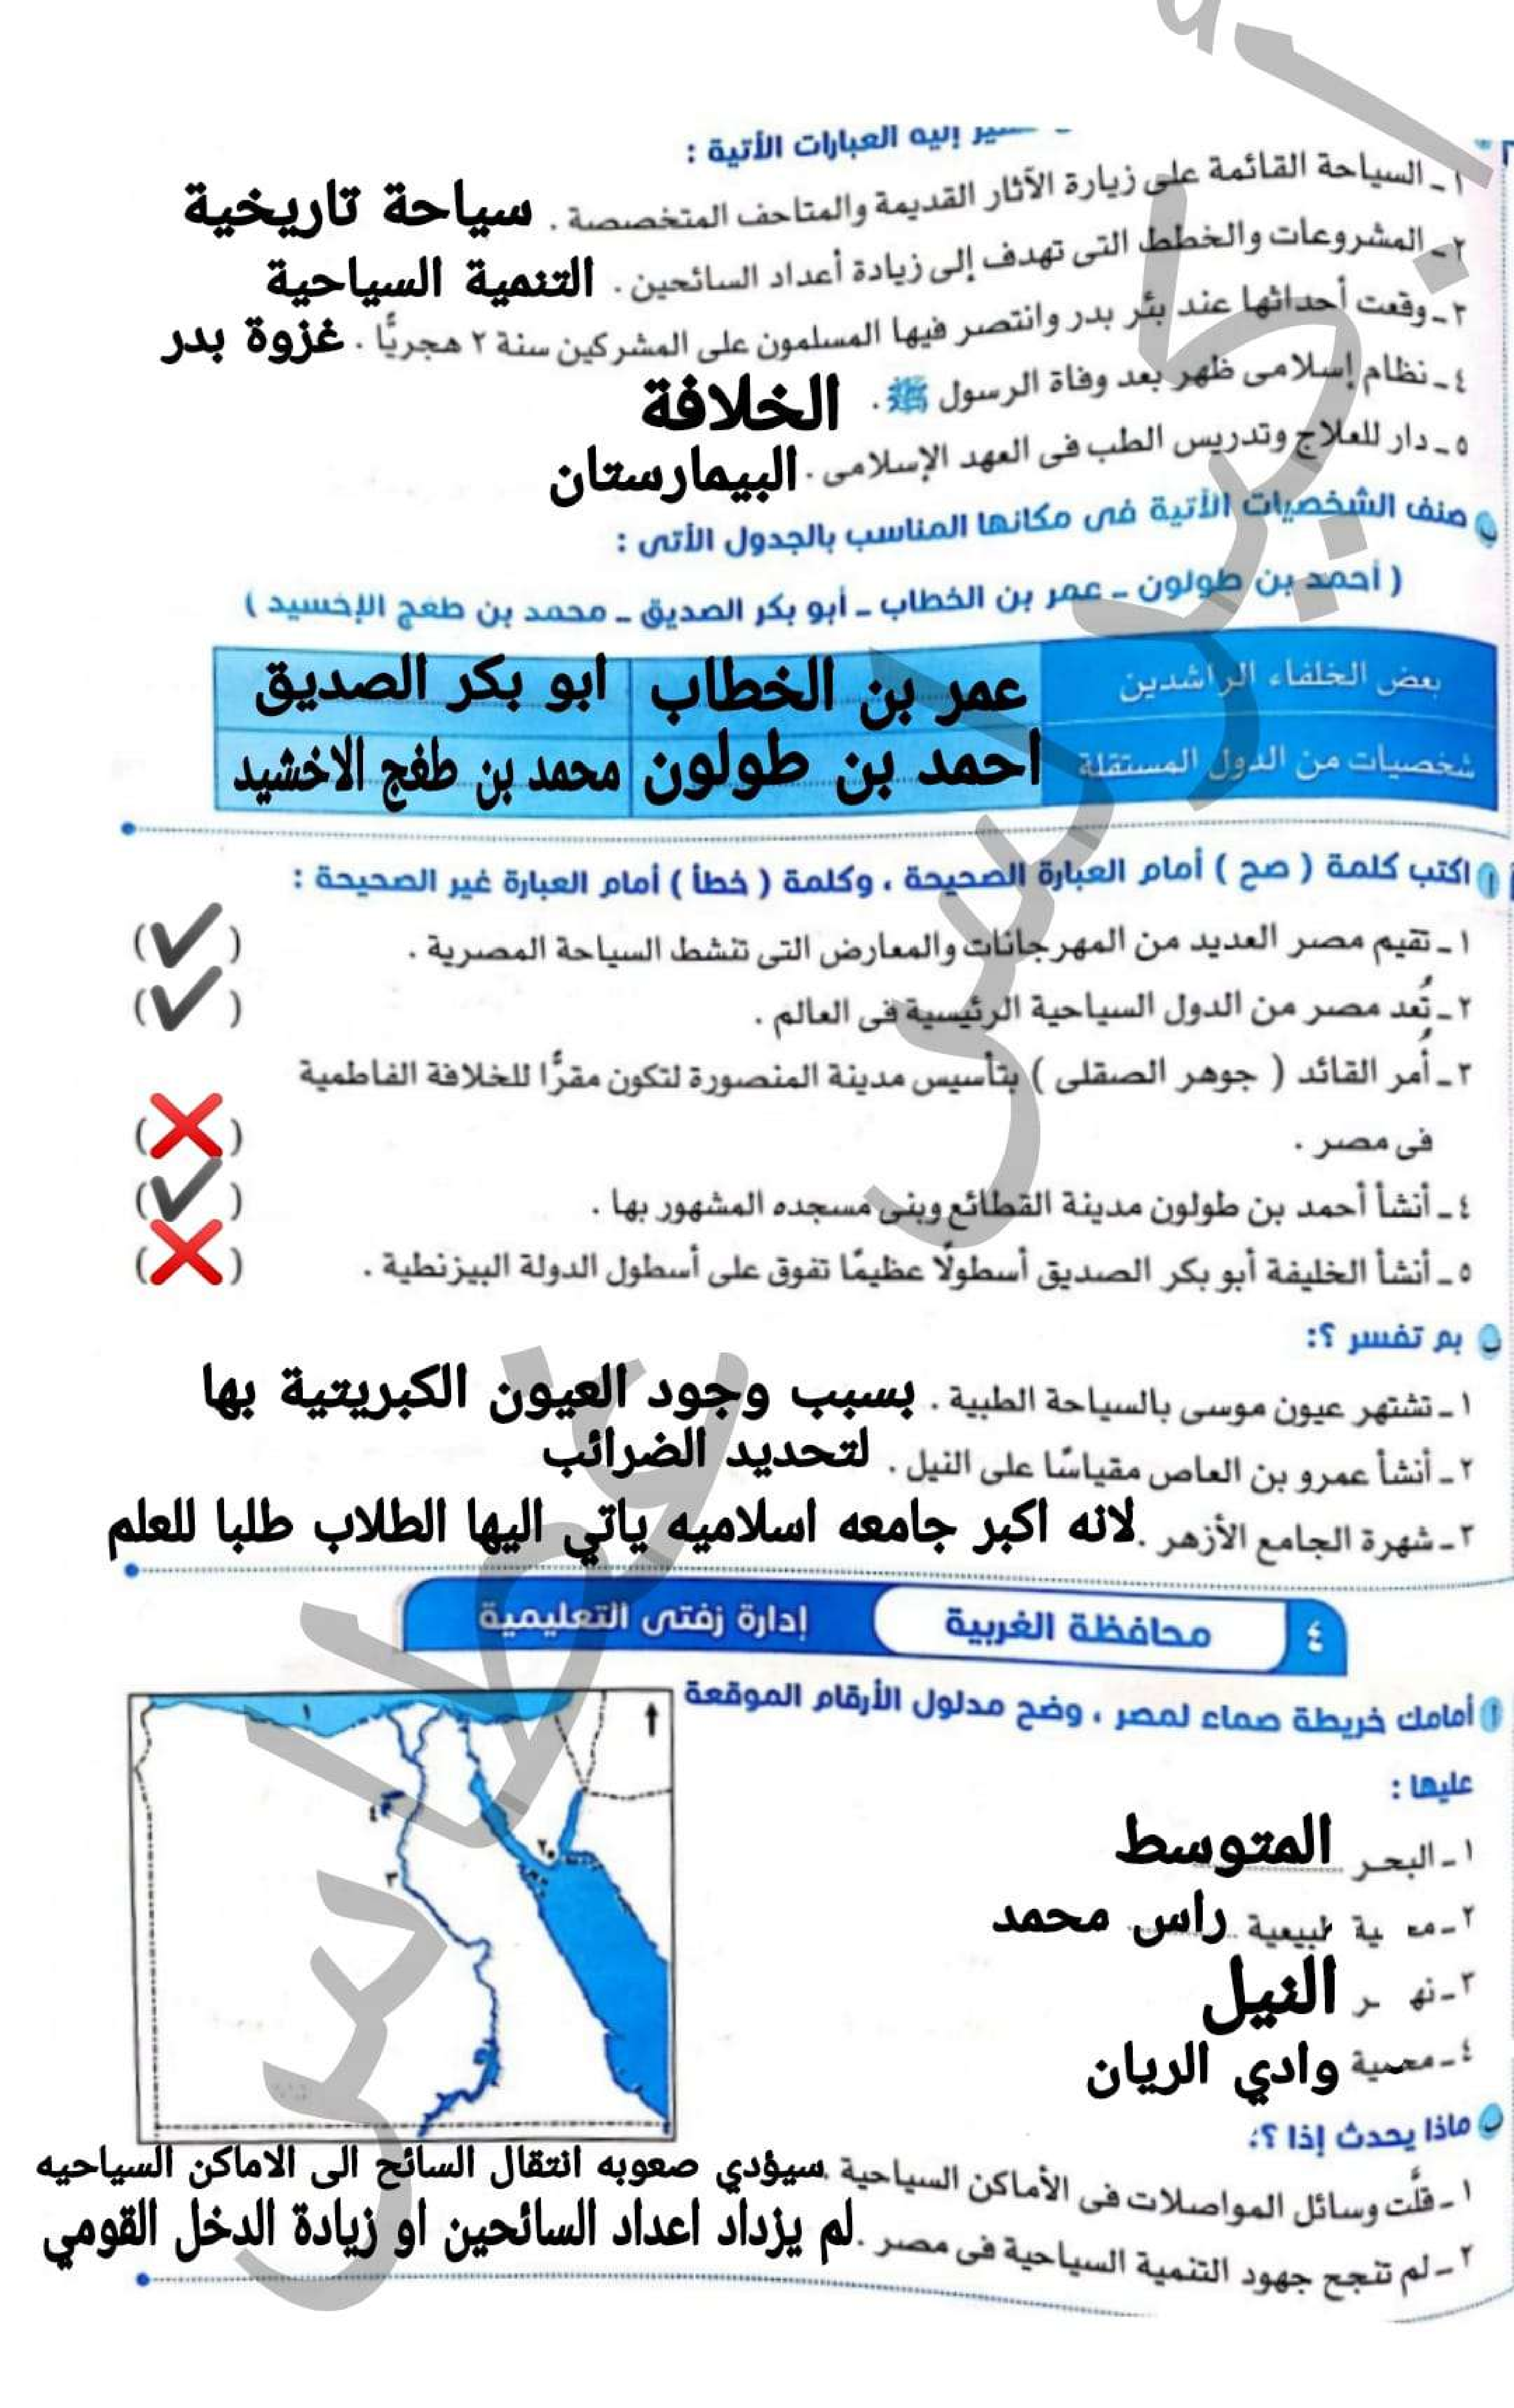 إليه العبارات الأتية :
١ ـ السياحة القائمة على زيارة الآثار القديمة والمتاحف المتخصصة . سياحة تاريخية
٢ ـ المشروعات والخطط التى تهدف إلى زيادة أعداد السائحين . التنمية السياحية
٣ ـ وقعت أحداثها عند بئر بدر وانتصر فيها المسلمون على المشركين سنة ٢ هجريًّا . غزوة بدر
٤ ـ نظام إسلامى ظهر بعد وفاة الرسول ﷺ . الخلافة
٥ ـ دار للعلاج وتدريس الطب فى العهد الإسلامى . البيمارستان
ب صنف الشخصيات الأتية فى مكانها المناسب بالجدول الأتى :
( أحمد بن طولون ـ عمر بن الخطاب ـ أبو بكر الصديق ـ محمد بن طغج الإخسيد )
بعض الخلفاء الراشدين عمر بن الخطاب ابو بكر الصديق
شخصيات من الدول المستقلة احمد بن طولون محمد بن طفج الاخشيد
أ اكتب كلمة ( صح ) أمام العبارة الصحيحة ، وكلمة ( خطأ ) أمام العبارة غير الصحيحة :
١ ـ تقيم مصر العديد من المهرجانات والمعارض التى تنشط السياحة المصرية . (✔)
٢ ـ تُعد مصر من الدول السياحية الرئيسية فى العالم . (✔)
٣ ـ أمر القائد ( جوهر الصقلى ) بتأسيس مدينة المنصورة لتكون مقرًّا للخلافة الفاطمية
فى مصر . (❌)
٤ ـ أنشأ أحمد بن طولون مدينة القطائع وبنى مسجده المشهور بها . (✔)
٥ ـ أنشأ الخليفة أبو بكر الصديق أسطولًا عظيمًا تفوق على أسطول الدولة البيزنطية . (❌)
ب بم تفسر ؟:
١ ـ تشتهر عيون موسى بالسياحة الطبية . بسبب وجود العيون الكبريتية بها
٢ ـ أنشأ عمرو بن العاص مقياسًا على النيل . لتحديد الضرائب
٣ ـ شهرة الجامع الأزهر . لانه اكبر جامعه اسلاميه ياتي اليها الطلاب طلبا للعلم
٤ محافظة الغربية إدارة زفتى التعليمية
أ أمامك خريطة صماء لمصر ، وضح مدلول الأرقام الموقعة
عليها :
١ ـ البحر المتوسط
٢ ـ مح ية طبيعية راس محمد
٣ ـ نهـ ـر النيل
٤ ـ محمية وادي الريان
١
٢
٣
٤
ب ماذا يحدث إذا ؟:
١ ـ قلَّت وسائل المواصلات فى الأماكن السياحية . سيؤدي صعوبه انتقال السائح الى الاماكن السياحيه
٢ ـ لم تنجح جهود التنمية السياحية فى مصر . لم يزداد اعداد السائحين او زيادة الدخل القومي